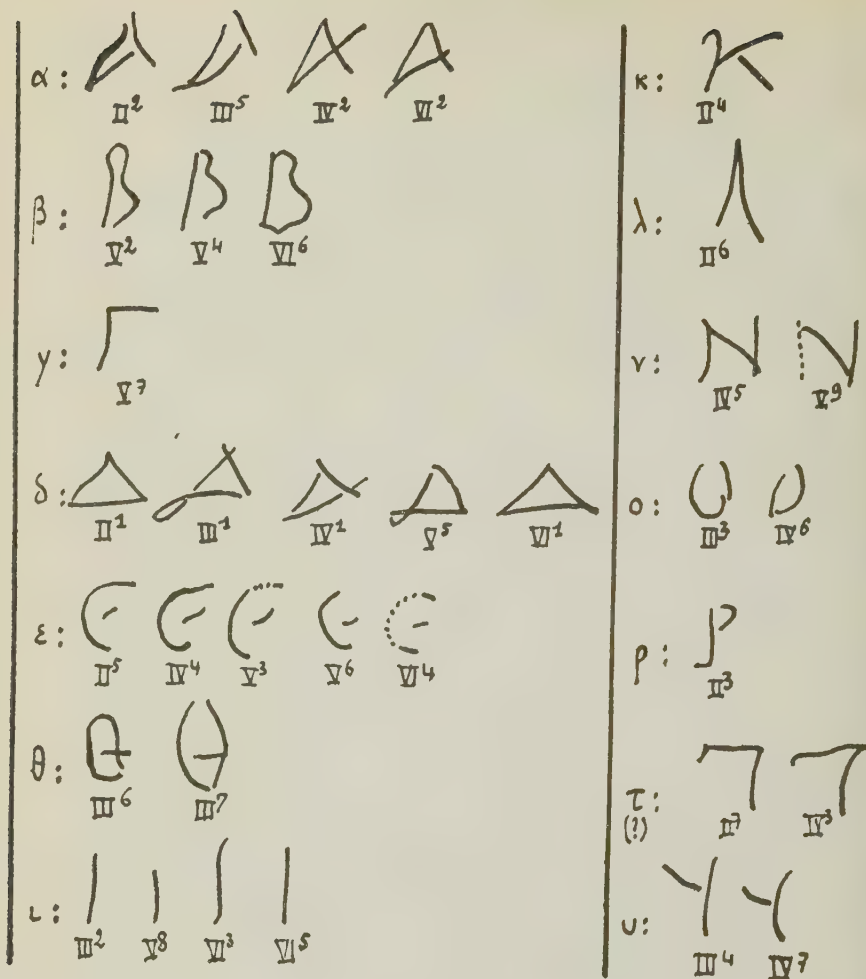 α:
II² III⁵ IV² VI²
β:
V² V⁴ VI⁶
γ:
V⁷
δ:
II¹ III¹ IV¹ V⁵ VI¹
ε:
II⁵ IV⁴ V³ V⁶ VI⁴
θ:
III⁶ III⁷
ι:
III² V⁸ VI³ VI⁵
κ:
II⁴
λ:
II⁶
ν:
IV⁵ V⁹
ο:
III³ IV⁶
ρ:
II³
τ:
(?)
II⁷ IV³
υ:
III⁴ IV⁷